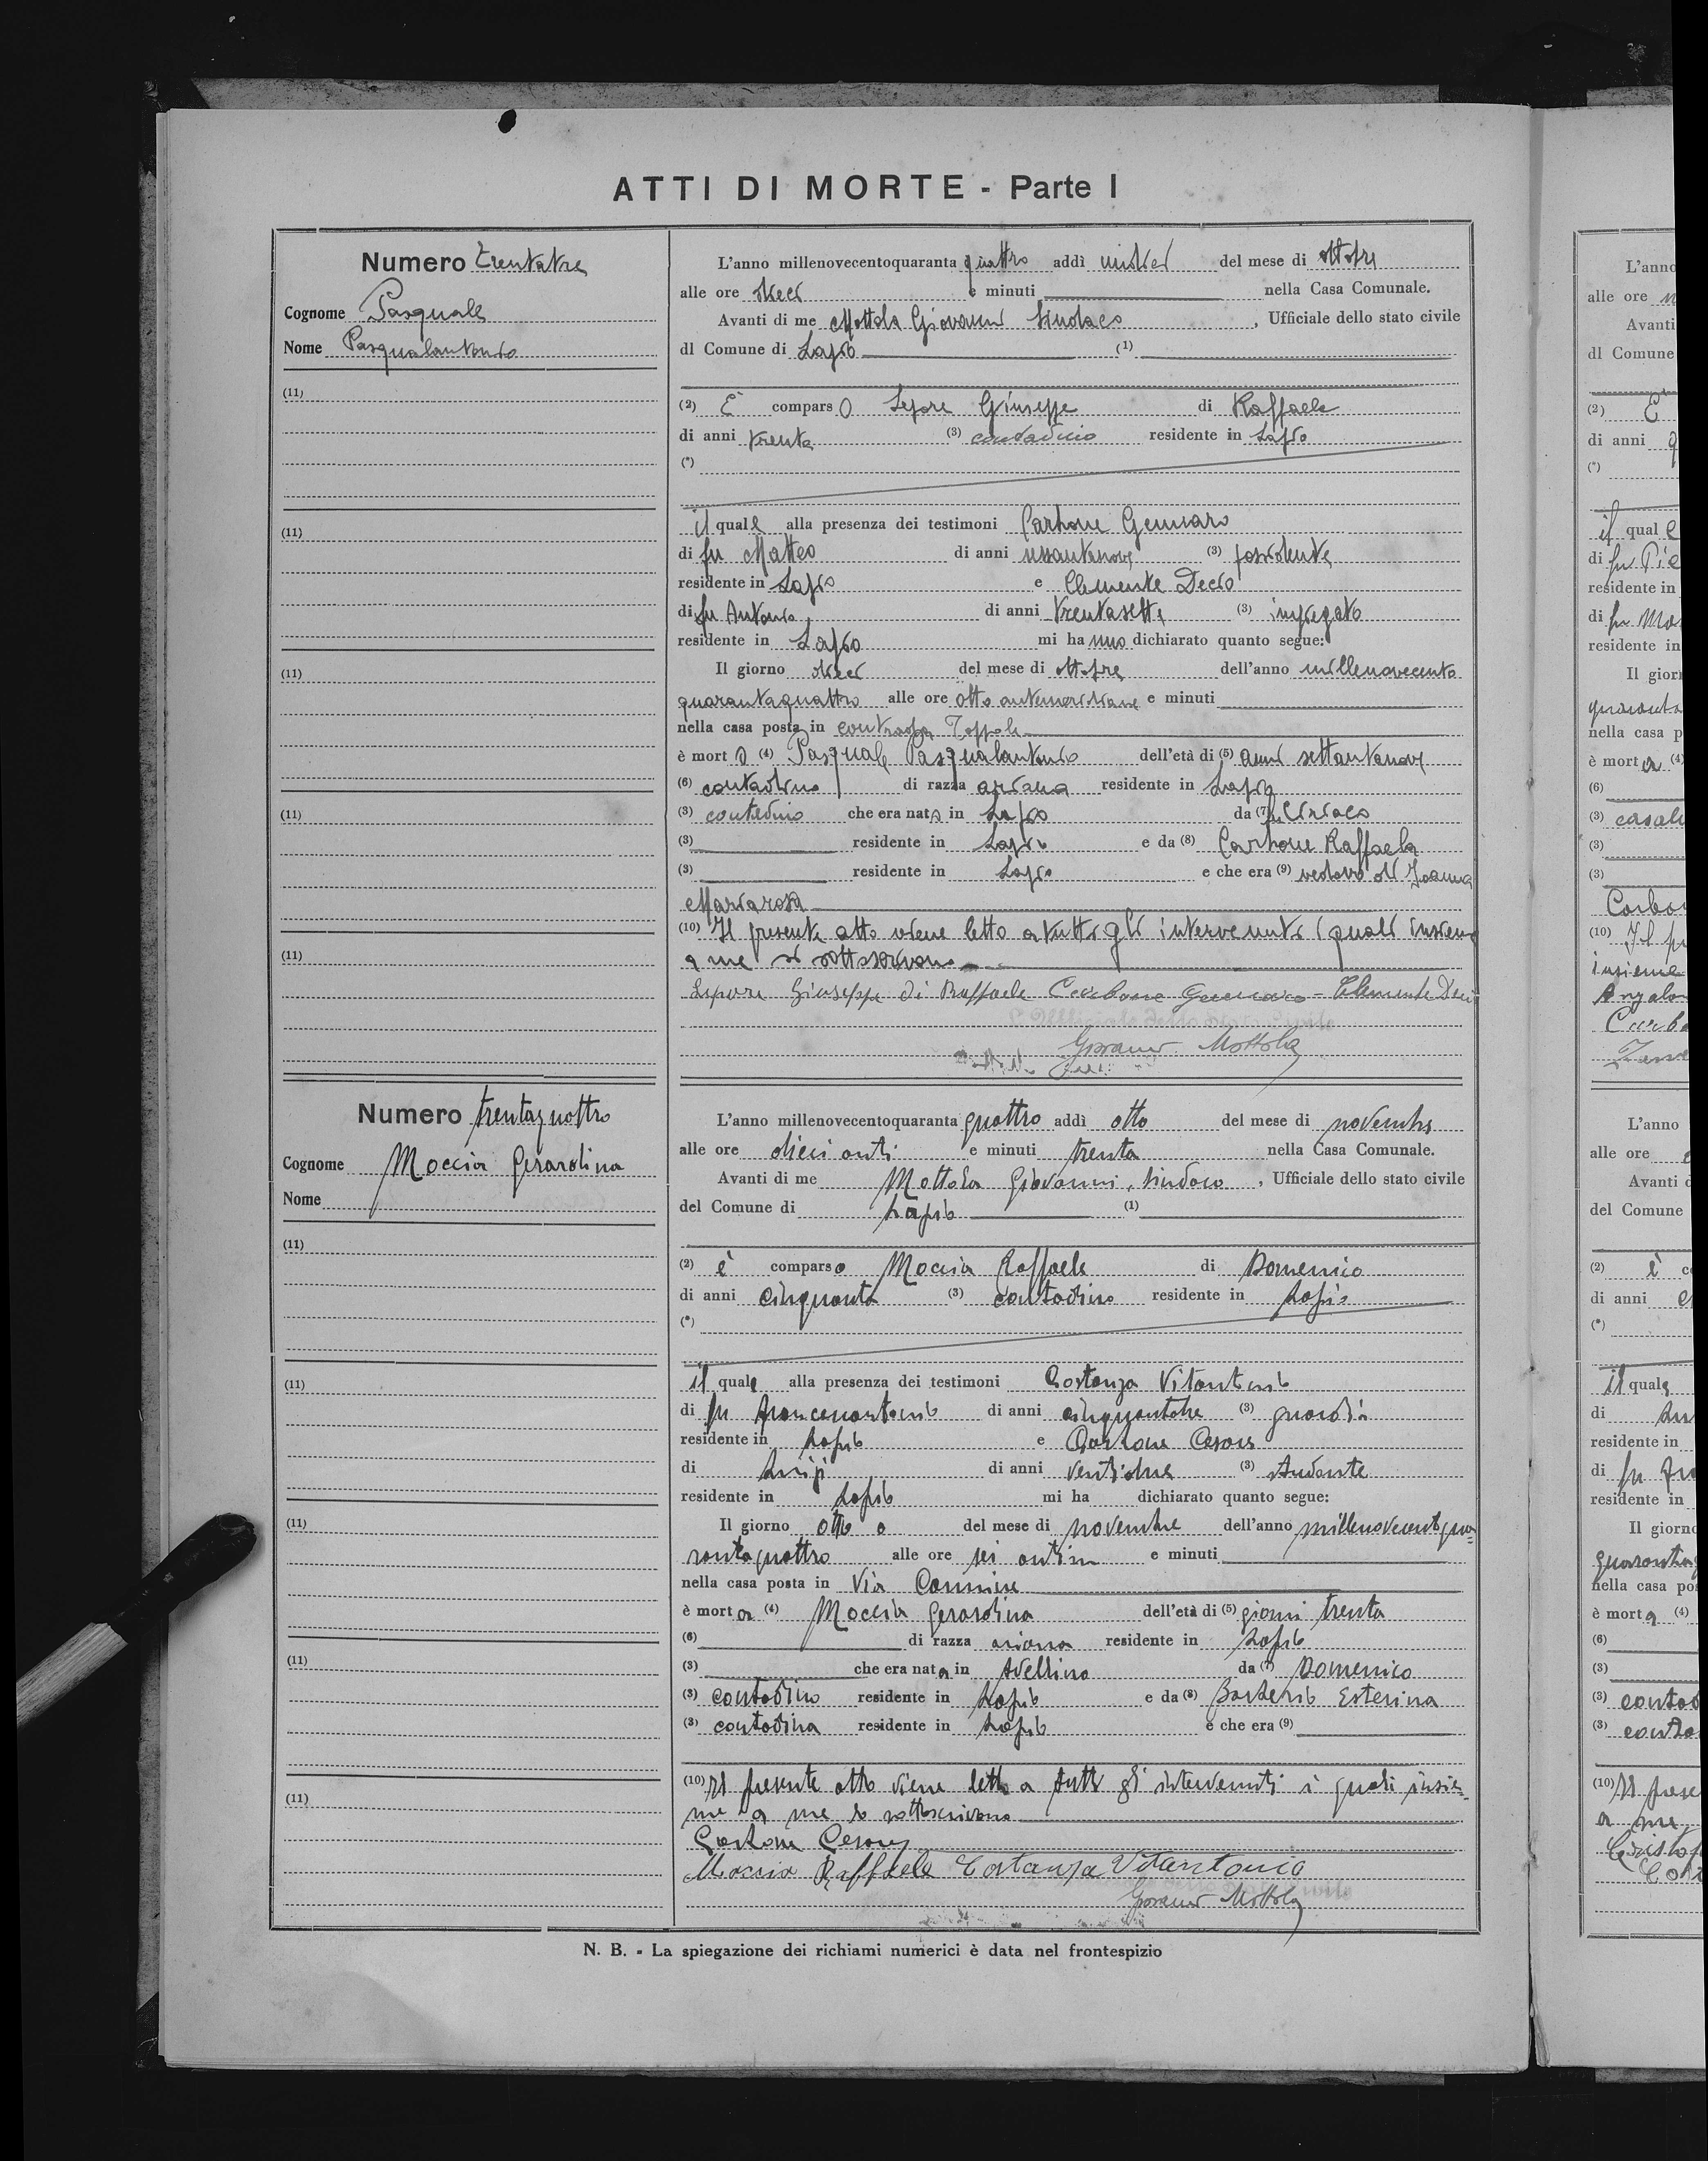 ATTI DI MORTE - Parte I
Numero trentatre
Cognome Pasquale
Nome Pasqualantonio
(11)
(11)
(11)
(11)
(11)
L'anno millenovecentoquaranta quattro addì undici del mese di ottobre
alle ore dieci e minuti nella Casa Comunale.
Avanti di me Mottola Giovanni Sindaco, Ufficiale dello stato civile
dl Comune di Lapio (1)
(2) È comparso Lepore Giuseppe di Raffaele
di anni trenta (3) contadino residente in Lapio
(*)
il quale alla presenza dei testimoni Carbone Gennaro
di fu Matteo di anni sessantanove (3) possidente
residente in Lapio e Clemente Decio
di fu Antonio di anni trentasette (3) impiegato
residente in Lapio mi ha nno dichiarato quanto segue:
Il giorno dieci del mese di ottobre dell'anno millenovecento
quarantaquattro alle ore otto antimeridiane e minuti
nella casa posta in contrada Toppole
è morto (4) Pasquale Pasqualantonio dell'età di (5) anni settantanove
(6) contadino di razza ariana residente in Lapio
(3) contadino che era nato in Lapio da (7) fu Ciriaco
(3) residente in Lapio e da (8) Carbone Raffaela
(3) residente in Lapio e che era (9) vedovo di Joanna
Mariarosa
(10) Il presente atto viene letto a tutti gli intervenuti i quali insieme
a me si sottoscrivono
Lepore Giuseppe di Raffaele Carbone Gennaro - Clemente Decio
L'Ufficiale dello Stato Civile
Giovanni Mottola
Numero trentaquattro
Cognome Moccia Gerardina
Nome
(11)
(11)
(11)
(11)
(11)
L'anno millenovecentoquaranta quattro addì otto del mese di novembre
alle ore dieci anti e minuti trenta nella Casa Comunale.
Avanti di me Mottola Giovanni, Sindaco, Ufficiale dello stato civile
del Comune di Lapio (1)
(2) è comparso Moccia Raffaele di Domenico
di anni cinquanta (3) contadino residente in Lapio
(*)
il quale alla presenza dei testimoni Costanza Vitantonio
di fu Francescantonio di anni cinquantatre (3) guardia
residente in Lapio e Carbone Cesare
di Luigi di anni ventidue (3) studente
residente in Lapio mi ha dichiarato quanto segue:
Il giorno otto del mese di novembre dell'anno millenovecentoqua=
rantaquattro alle ore sei antim e minuti
nella casa posta in Via Carmine
è morta (4) Moccia Gerardina dell'età di (5) giorni trenta
(6) di razza ariana residente in Lapio
(3) che era nata in Avellino da (7) Domenico
(3) contadino residente in Lapio e da (8) Barberio Esterina
(3) contadina residente in Lapio e che era (9)
(10) Il presente atto viene letto a tutti gli intervenuti i quali insie=
me a me lo sottoscrivono
Carbone Cesare
Moccia Raffaele Costanza Vitantonio
Giovanni Mottola
N. B. - La spiegazione dei richiami numerici è data nel frontespizio
L'anno
alle ore
Avanti
dl Comune
(2) È
di anni
(*)
il quale
di fu Pie
residente in
di fu Ma
residente in
Il gior
quaranta
nella casa p
è morta (4)
(6)
(3) casali
(3)
(3)
Carbo
(10) Il p
insieme
Carb
L'anno
alle ore
Avanti d
del Comune
(2) è c
di anni
(*)
il quale
di
residente in
di fu
residente in
Il giorno
quaranta
nella casa pos
è morta (4)
(6)
(3)
(3) contad
(3) conta
(10) Il prese
a me